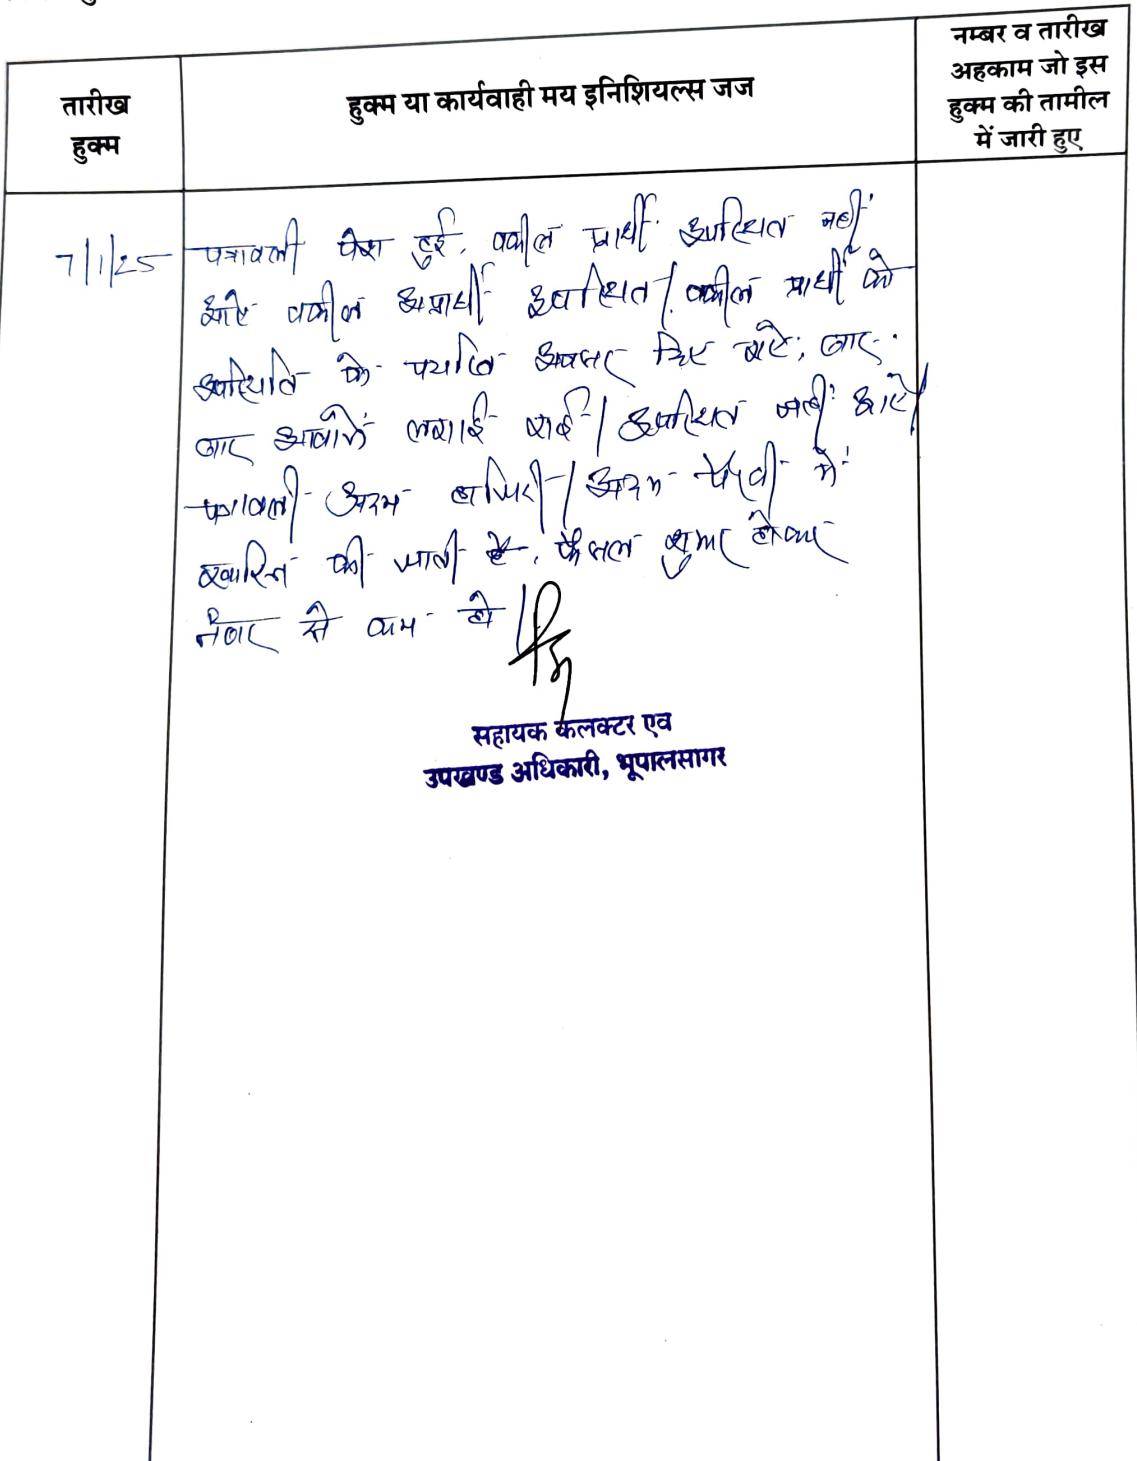 तारीख
हुक्म
हुक्म या कार्यवाही मय इनिशियल्स जज
नम्बर व तारीख
अहकाम जो इस
हुक्म की तामील
में जारी हुए
7/1/25
पत्रावली पेश हुई, वकील प्रार्थी उपस्थित नहीं
आये वकील अप्रार्थी उपस्थित / वकील प्रार्थी को
उपस्थिति के पर्याप्त अवसर दिए गये, बार-
बार आवाजें लगाई गई / उपस्थित नहीं आये /
पत्रावली अदम हाजिरी / अदम पैरवी में
खारिज की जाती है, फैसल शुमार होकर
नंबर से कम हो /
सहायक कलक्टर एवं
उपखण्ड अधिकारी, भूपालसागर